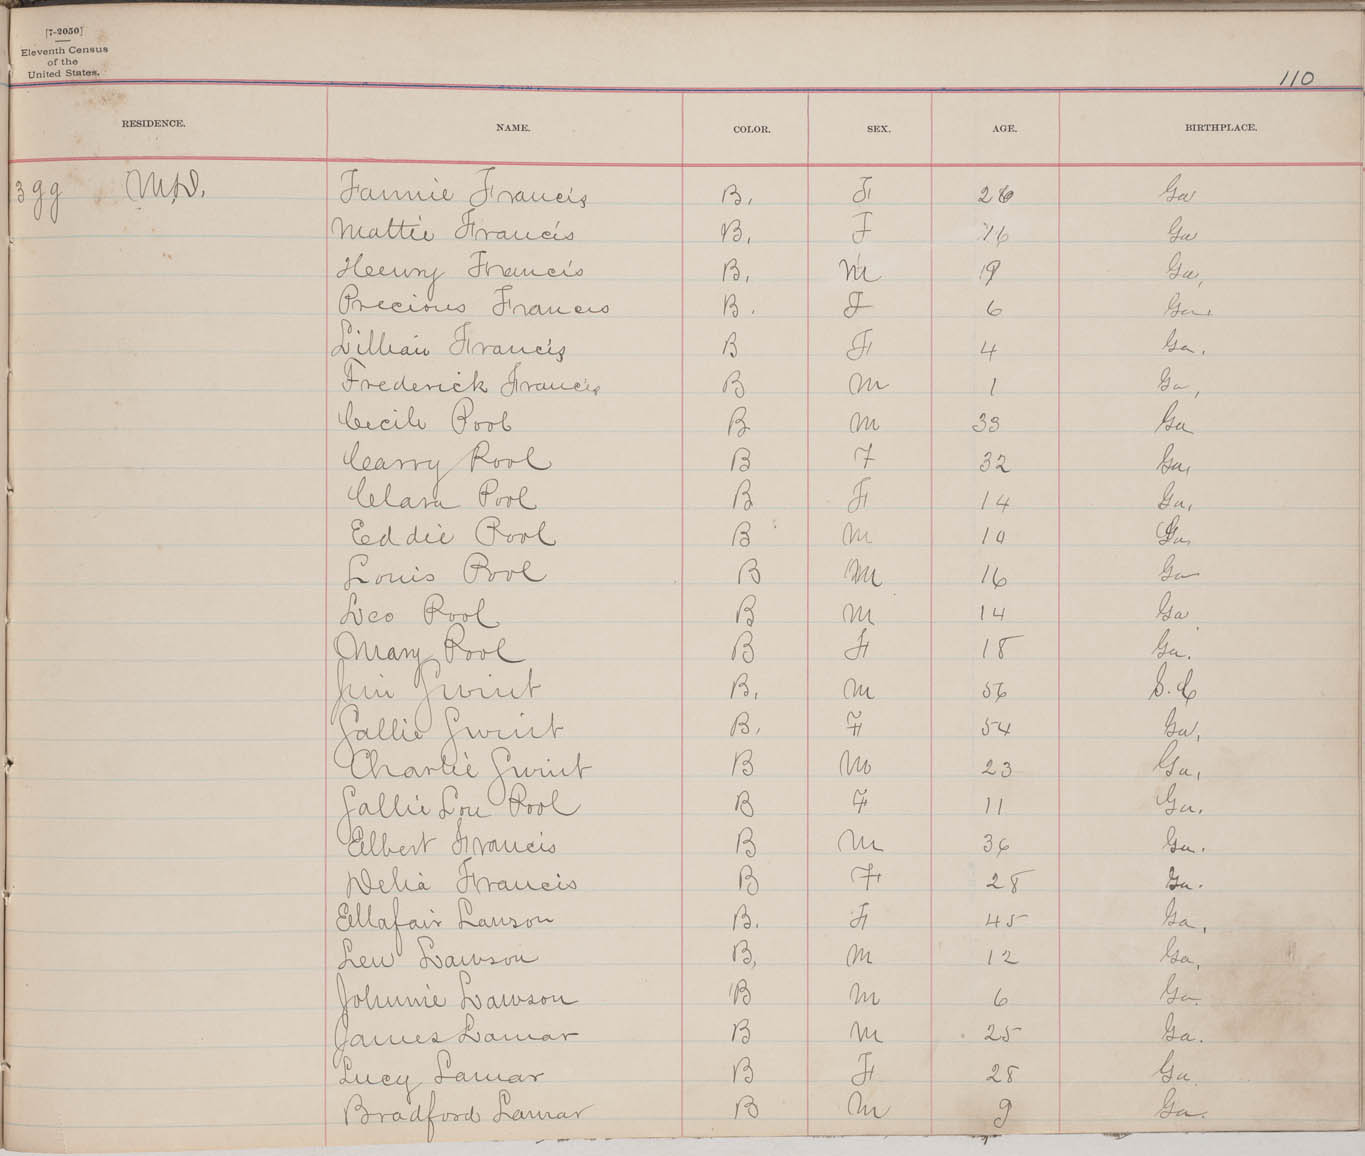 [7-2050]
Eleventh Census
of the
United States.
110
RESIDENCE. NAME. COLOR. SEX. AGE. BIRTHPLACE.
3 gg M.D. Fannie Francis B. F 26 Ga
Mattie Francis B. F 16 Ga
Henry Francis B. M 9 Ga.
Precious Francis B. F 6 Ga.
Lillian Francis B F 4 Ga.
Frederick Francis B M 1 Ga.
Cecile Pool B M 33 Ga
Carry Pool B F 32 Ga.
Clara Pool B F 14 Ga.
Eddie Pool B M 10 Ga.
Louis Pool B M 16 Ga
Leo Pool B M 14 Ga
Mary Pool B F 18 Ga.
Jim Swint B. M 56 S.C
Sallie Swint B. F 54 Ga.
Charlie Swint B M 23 Ga.
Sallie Lou Pool B F 11 Ga.
Elbert Francis B M 36 Ga.
Delia Francis B F 28 Ga.
Ellafair Lawson B. F 45 Ga.
Lew Lawson B. M 12 Ga.
Johnnie Lawson B M 6 Ga.
James Lamar B M 25 Ga.
Lucy Lamar B F 28 Ga
Bradford Lamar B M 9 Ga.